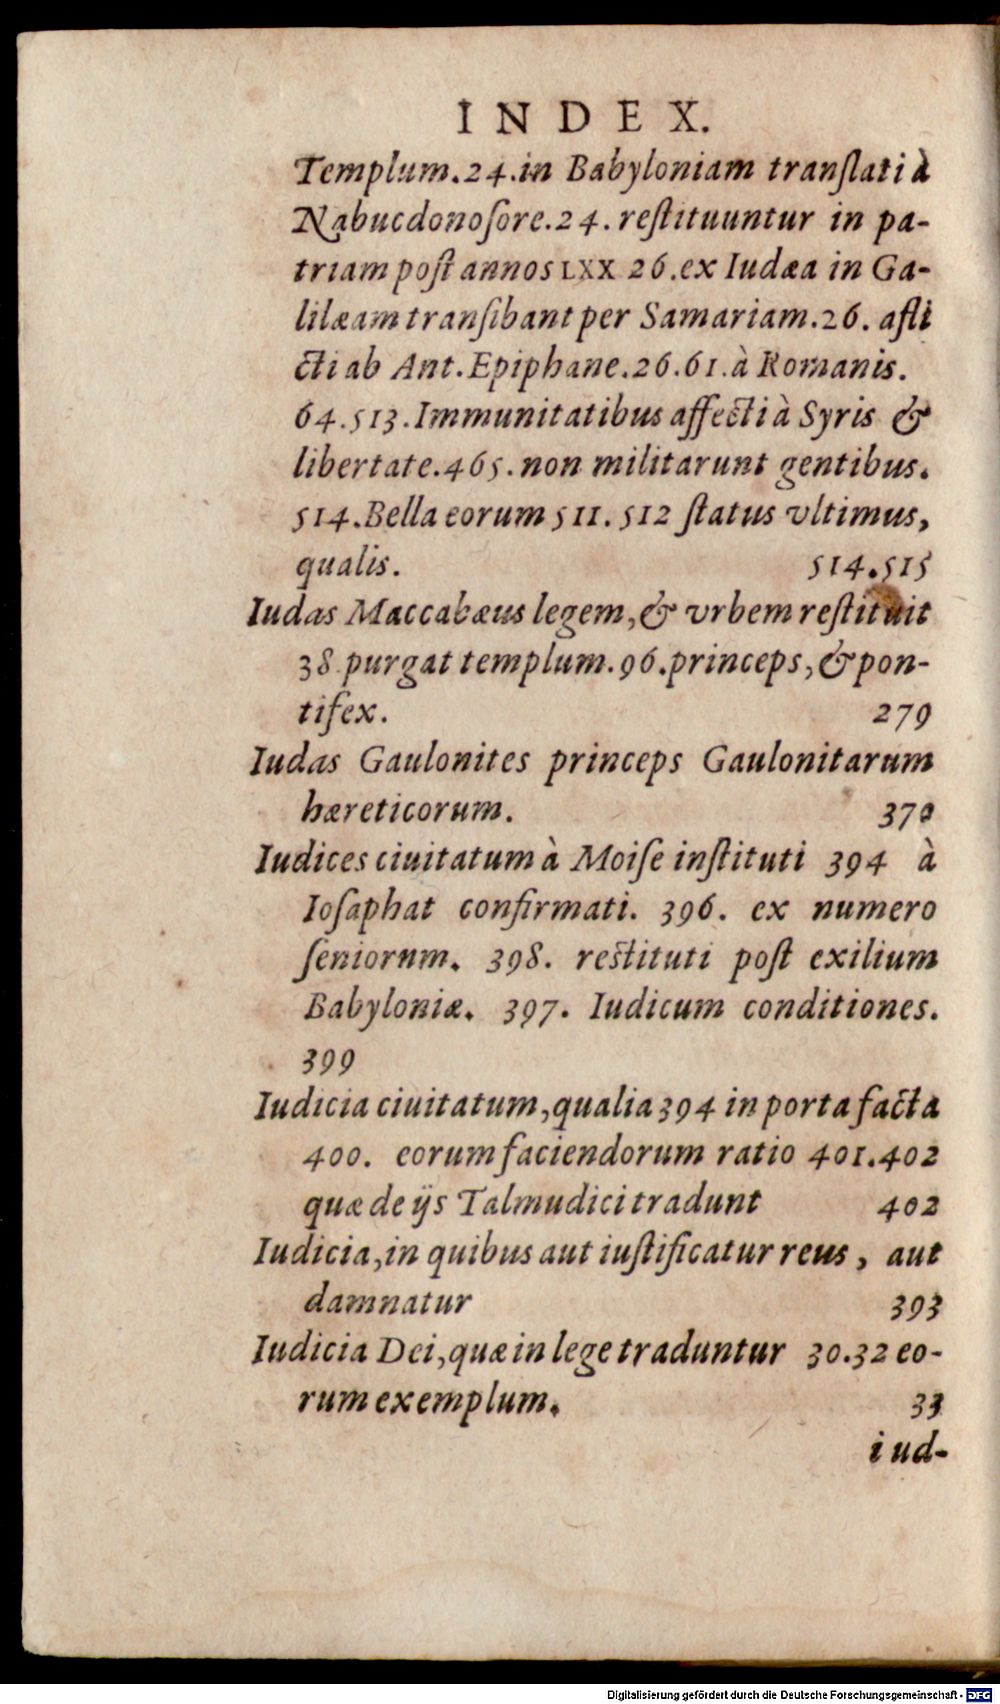 INDEX.
Templum.24.in Babyloniam tranſlati à
Nabucdonoſore.24. reſtituuntur in pa-
triam poſt annos LXX 26.ex Iudæa in Ga-
lilæam tranſibant per Samariam.26. afli
cti ab Ant.Epiphane.26.61.à Romanis.
64.513.Immunitatibus affecti à Syris &
libertate.465.non militarunt gentibus.
514.Bella eorum 511.512 ſtatus vltimus,
qualis. 514.515
Iudas Maccabæus legem,& vrbem reſtituit
38 purgat templum.96.princeps,& pon-
tifex. 279
Iudas Gaulonites princeps Gaulonitarum
hæreticorum. 370
Iudices ciuitatum à Moiſe inſtituti 394 à
Ioſaphat confirmati. 396. ex numero
ſeniorum. 398. reſtituti poſt exilium
Babyloniæ. 397. Iudicum conditiones.
399
Iudicia ciuitatum,qualia 394 in porta facta
400. eorum faciendorum ratio 401.402
quæ de ijs Talmudici tradunt 402
Iudicia,in quibus aut iuſtificatur reus, aut
damnatur 393
Iudicia Dei,quæ in lege traduntur 30.32 eo-
rum exemplum. 33
iud-
Digitalisierung gefördert durch die Deutsche Forschungsgemeinschaft - DFG